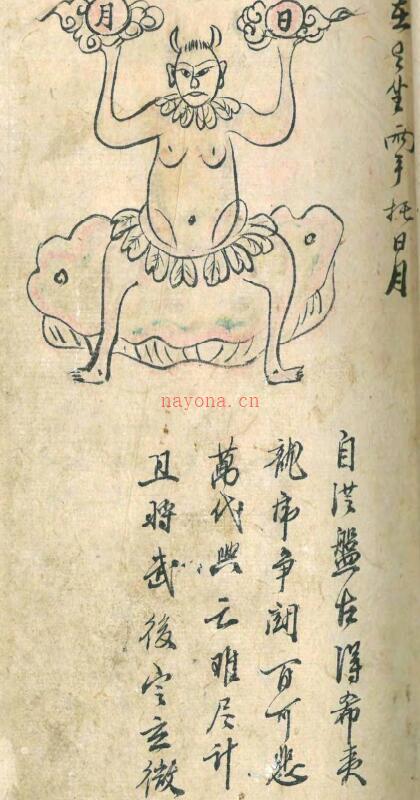 坐兩手托日月
日
月
自洪盤古得希夷
龍虎爭鬪百可悲
萬代興亡难尽計
且時武後定立微
nayona.cn